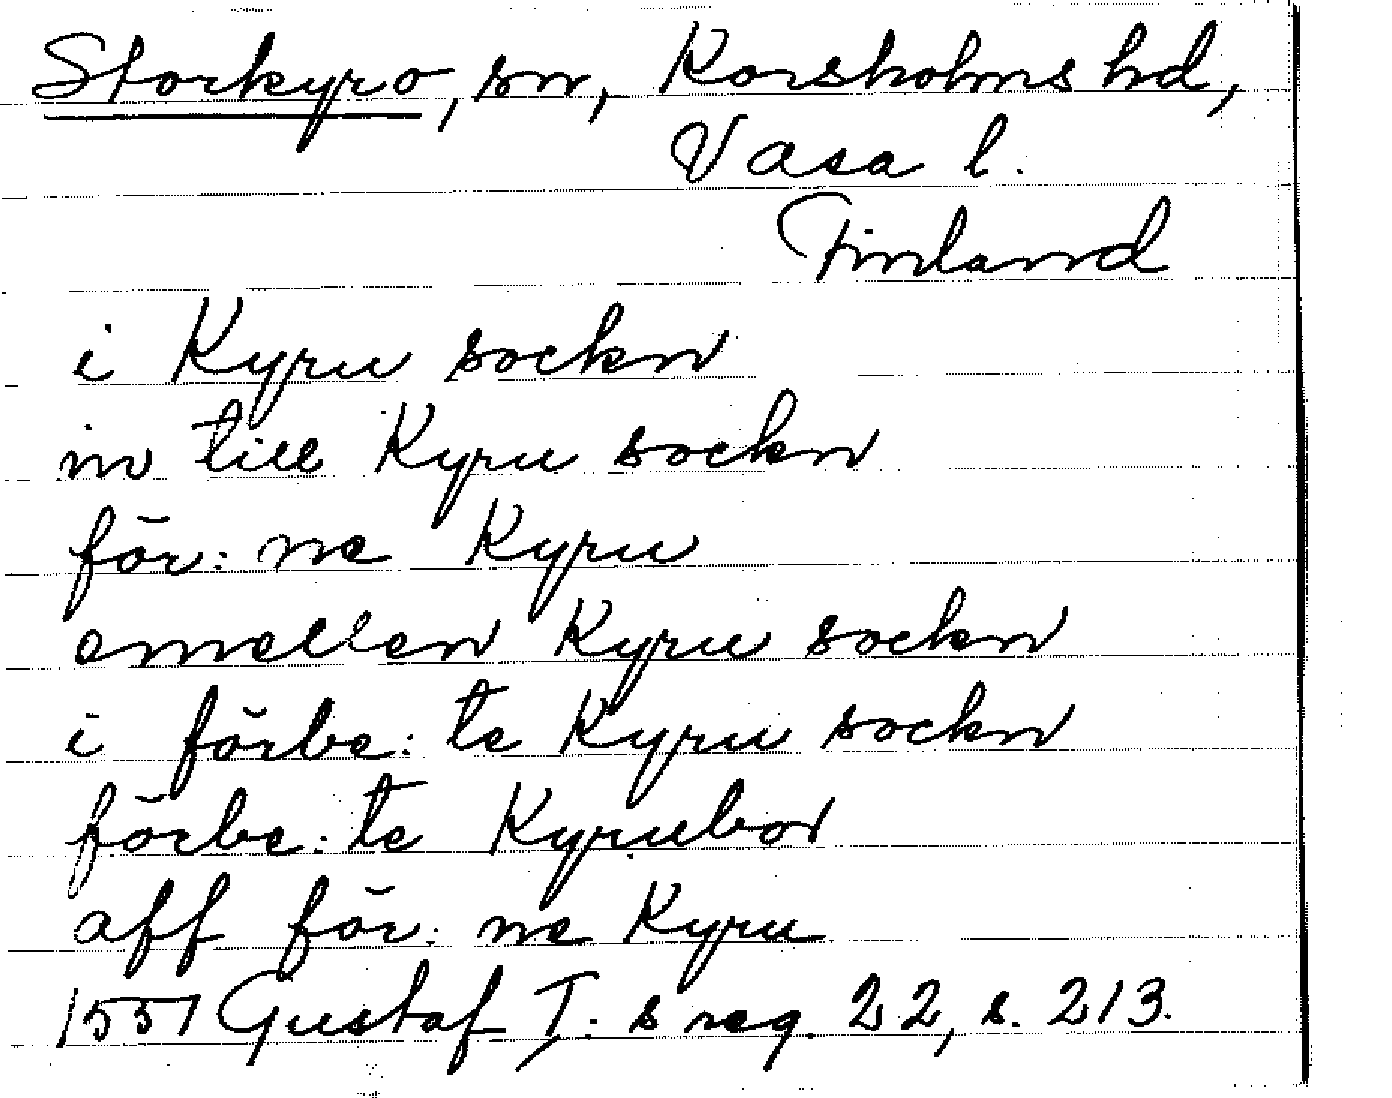 Storkyro, sn, Korsholms hd,
Vasa l.
Finland
i Kyru sockn
in till Kyru sockn
för: ne Kyru
emellen Kyru sockn
i förbe: te Kyru sockn
förbe: te Kyrubor
aff för: ne Kyru
1551 Gustaf I: s reg. 22, s. 213.